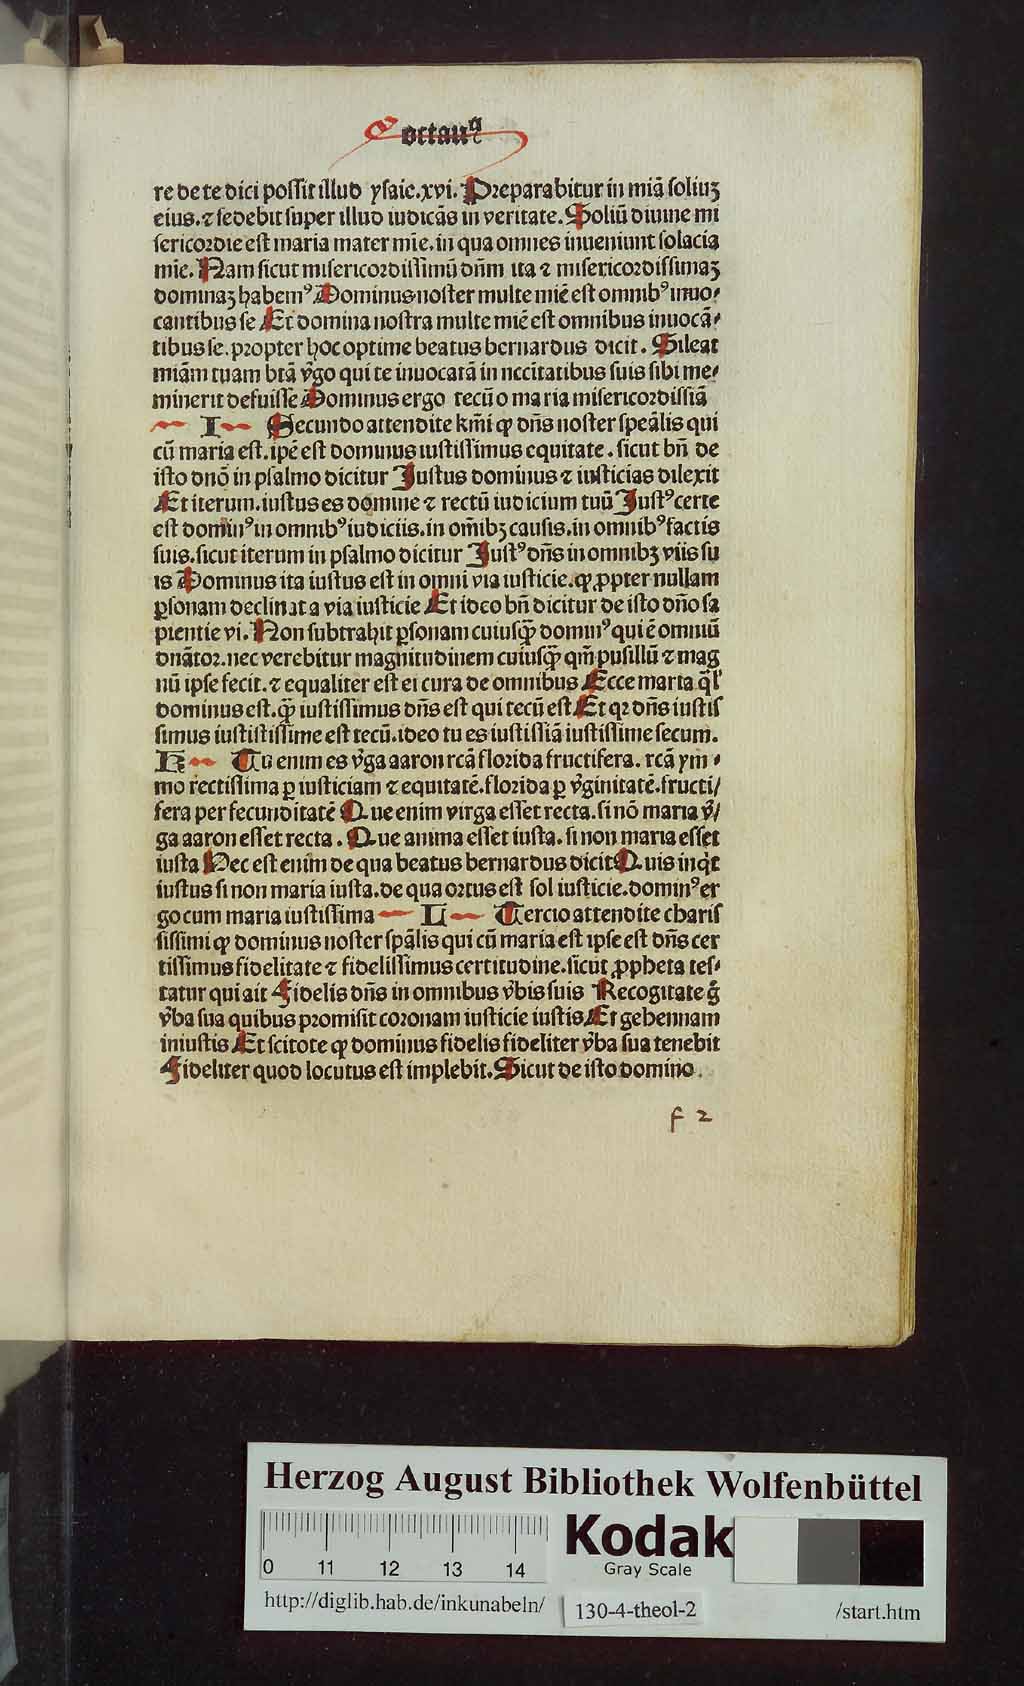 octauꝰ
re de te dici possit illud ysaie.xvi. Preparabitur in miā soliuʒ
eius. ⁊ sedebit super illud iudicās in veritate. Soliū diuine mi
sericordie est maria mater mie. in qua omnes inueniunt solacia
mie. Nam sicut misericordissimū dn̄m ita ⁊ misericordissimaʒ
dominaʒ habemꝰ Dominus noster multe mie̅ est omnibꝰ inuo-
cantibus se Et domina nostra multe mie̅ est omnibus inuocā-
tibus se. propter hoc optime beatus bernardus dicit. Sileat
miām tuam btā v̄go qui te inuocatā in nccītatibus suis sibi me-
minerit defuisse Dominus ergo tecū o maria misericordissiā
I Secundo attendite km̄i ꝙ dn̄s noster speālis qui
cū maria est. ipe̅ est dominus iustissimus equitate. sicut bn̄ de
isto dno̅ in psalmo dicitur Justus dominus ⁊ iusticias dilexit
Et iterum. iustus es domine ⁊ rectū iudicium tuū Justꝰ certe
est dominꝰ in omnibꝰ iudiciis. in om̄ibʒ causis. in omnibꝰ factis
suis. sicut iterum in psalmo dicitur Justꝰ dn̄s in omnibʒ viis su
is Dominus ita iustus est in omni via iusticie. ꝙ ꝓpter nullam
ꝑsonam declinat a via iusticie Et ideo bn̄ dicitur de isto dn̄o sa
pientie vi. Non subtrahit ꝑsonam cuiusqꝫ̄ dominꝰ qui ē omniū
dnātor. nec verebitur magnitudinem cuiusqꝫ̄ qm̄ pusillū ⁊ mag
nū ipse fecit. ⁊ equaliter est ei cura de omnibus Ecce maria q̄l'
dominus est. qꝫ̄ iustissimus dn̄s est qui tecū est Et qꝛ dn̄s iustis
simus iustistissime est tecū. ideo tu es iustissiā iustissime secum.
K Tu enim es v̄ga aaron rcā florida fructifera. rcā ym-
mo rectissima ꝑ iusticiam ⁊ equitatē. florida ꝑ v̄ginitatē. fructi/
fera per fecunditatē Que enim virga esset recta. si nō maria v̄/
ga aaron esset recta. Que anima esset iusta. si non maria esset
iusta Hec est enim de qua beatus bernardus dicit Quis inqͥt
iustus si non maria iusta. de qua ortus est sol iusticie. dominꝰ er
go cum maria iustissima L Tercio attendite charis
sissimi ꝙ dominus noster spālis qui cū maria est ipse est dn̄s cer
tissimus fidelitate ⁊ fidelissimus certitudine. sicut ꝓpheta tes-
tatur qui ait Fidelis dn̄s in omnibus v̄bis suis Recogitate g̊
v̄ba sua quibus promisit coronam iusticie iustis Et gehennam
iniustis Et scitote ꝙ dominus fidelis fideliter v̄ba sua tenebit
Fideliter quod locutus est implebit. Sicut de isto domino.
f 2
Herzog August Bibliothek Wolfenbüttel
0 11 12 13 14
Kodak
Gray Scale
http://diglib.hab.de/inkunabeln/ 130-4-theol-2 /start.htm